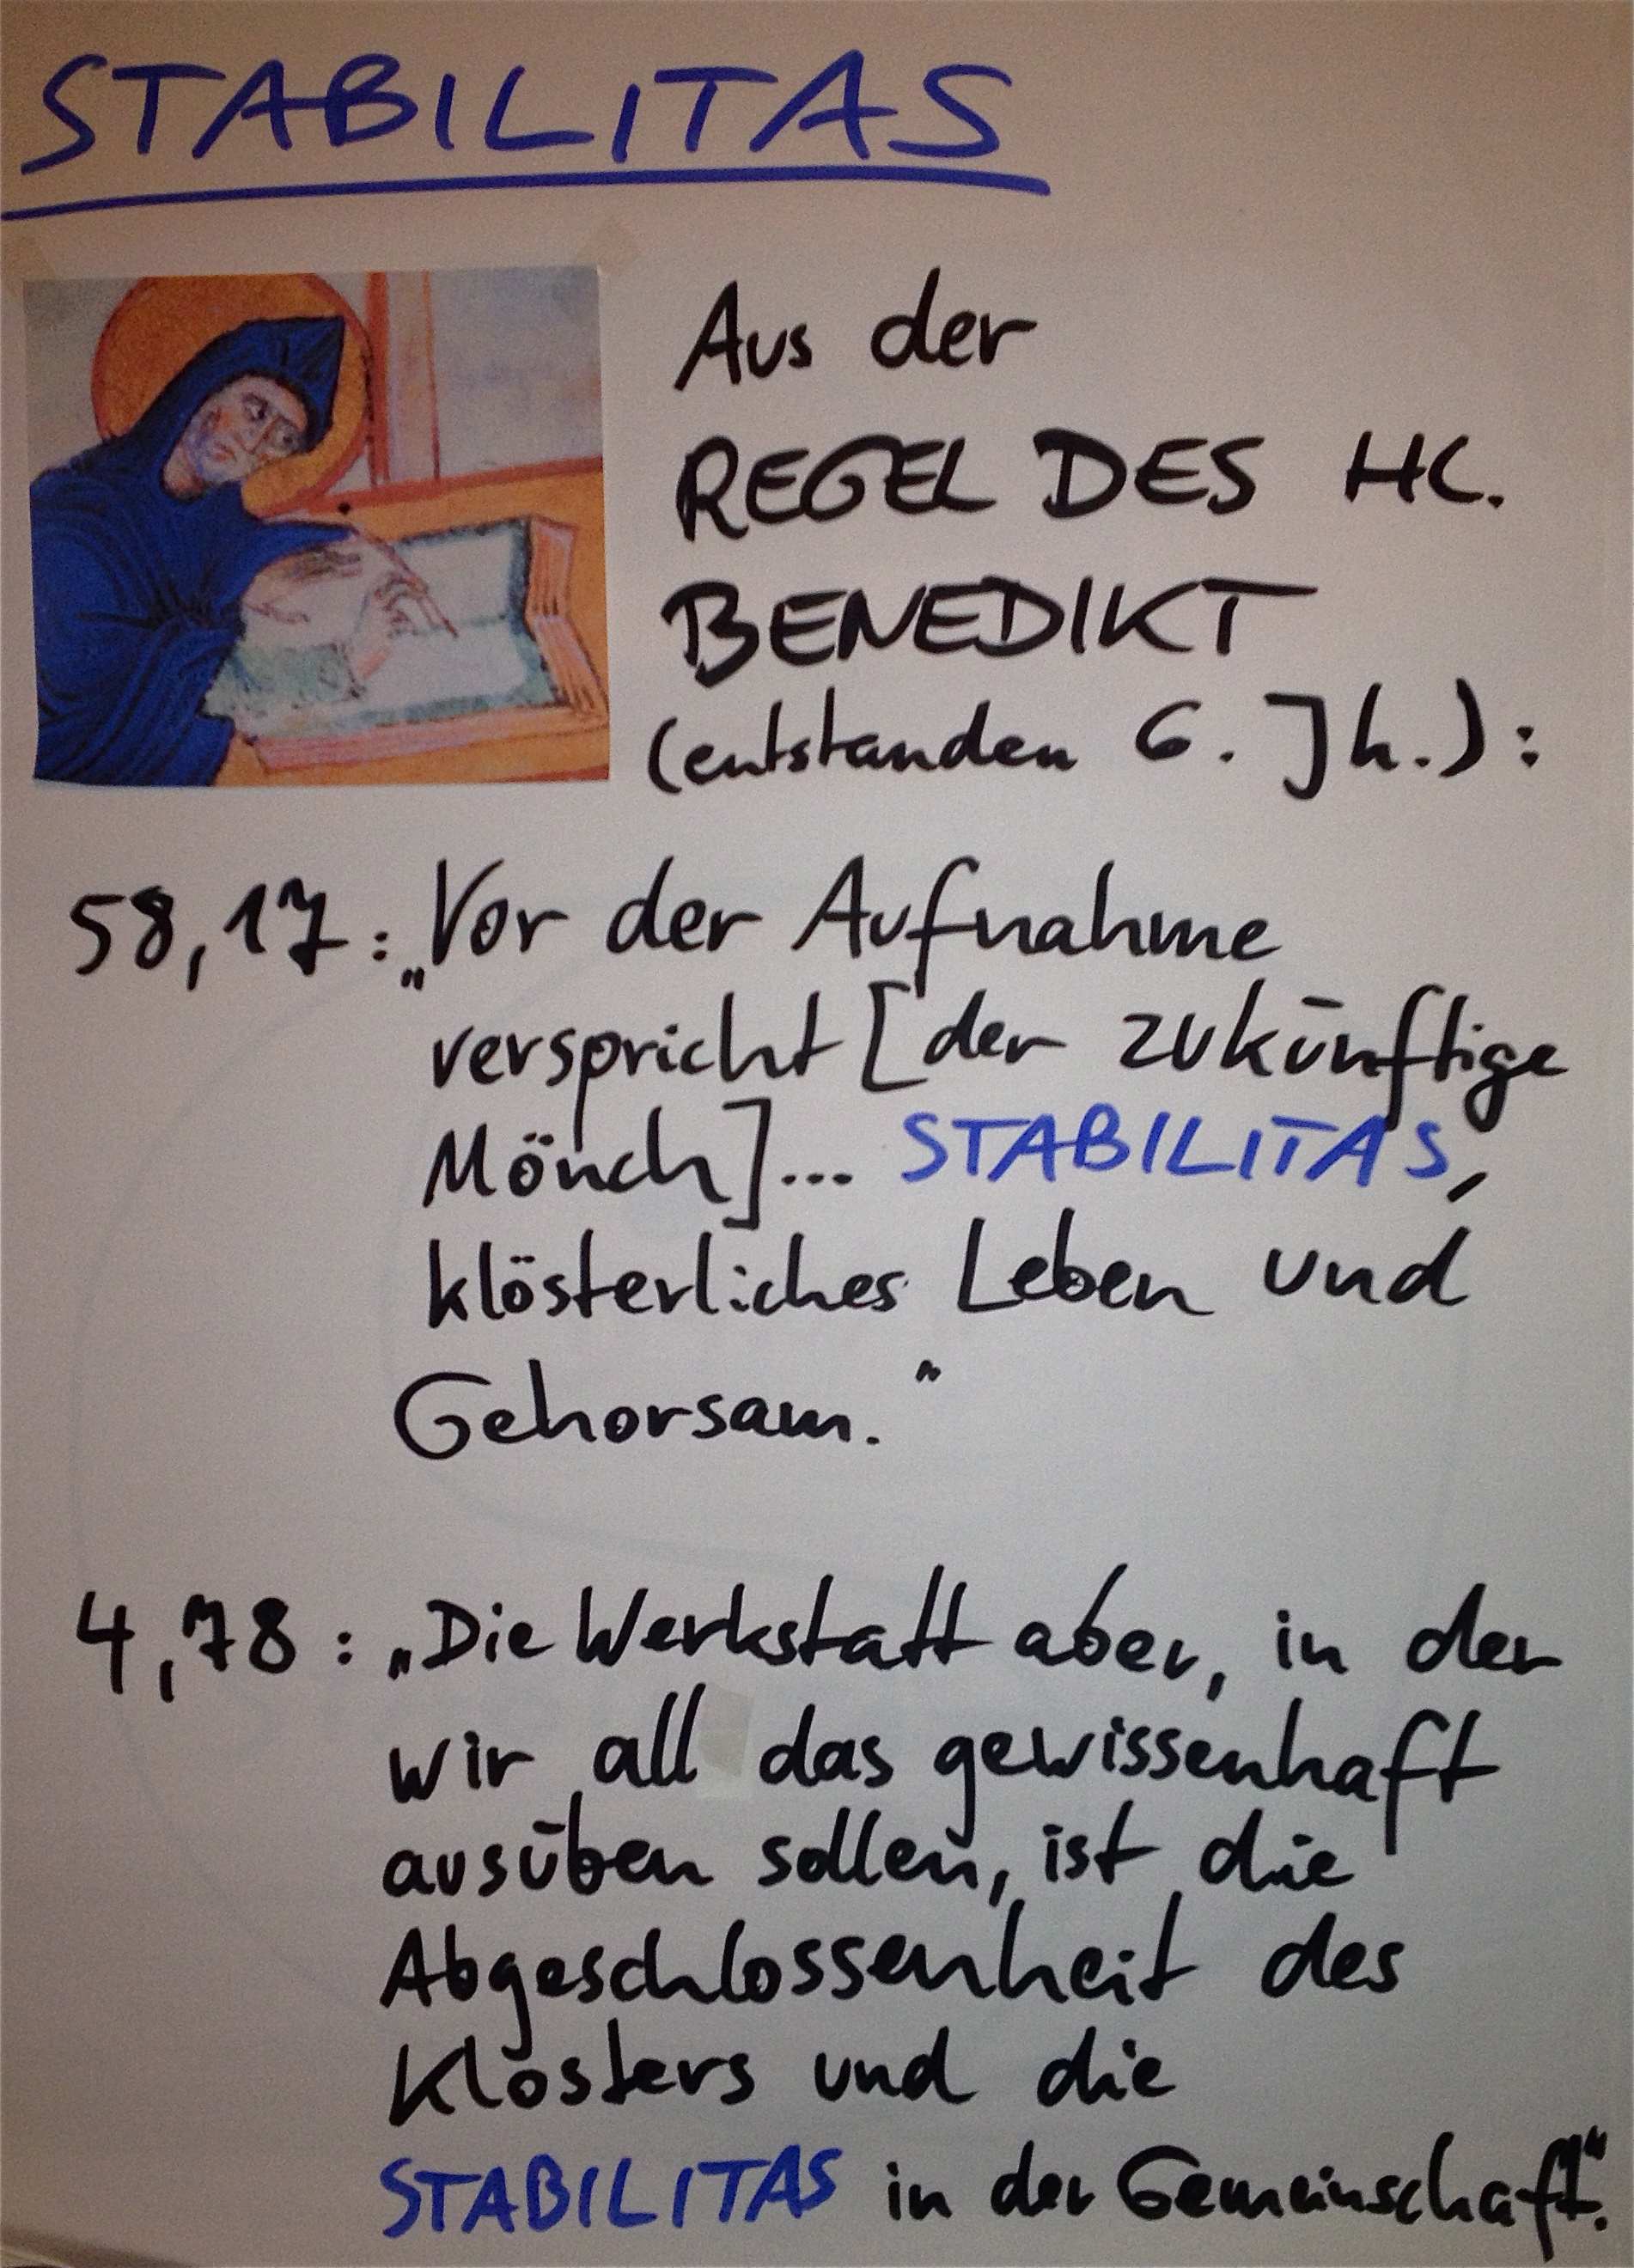 STABILITAS
Aus der
REGEL DES HL.
BENEDIKT
(entstanden 6. Jh.):
58,17: „Vor der Aufnahme
verspricht [der zukünftige
Mönch]... STABILITAS,
klösterliches Leben und
Gehorsam.“
4,78: „Die Werkstatt aber, in der
wir all das gewissenhaft
ausüben sollen, ist die
Abgeschlossenheit des
Klosters und die
STABILITAS in der Gemeinschaft“.